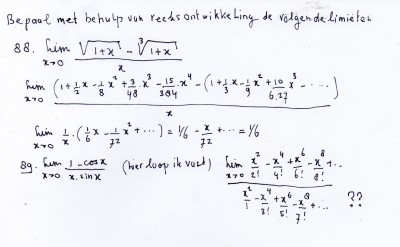 Bepaal met behulp van reeksontwikkeling de volgende limieten
88. lim x→0 (√(1+x) - ∛(1+x)) / x
lim x→0 ((1 + 1/2 x - 1/8 x² + 3/48 x³ - 15/384 x⁴ - (1 + 1/3 x - 1/9 x² + 10/6.27 x³ - ....)) / x
lim x→0 1/x · (1/6 x - 1/72 x² + ...) = 1/6 - x/72 + ... = 1/6
89. lim x→0 (1 - cosx) / (x. sinx) (hier loop ik vast) lim x→0 (x²/2! - x⁴/4! + x⁶/6! - x⁸/8! + ..) / (x²/1 - x⁴/3! + x⁶/5! - x⁸/7! + ...) ??